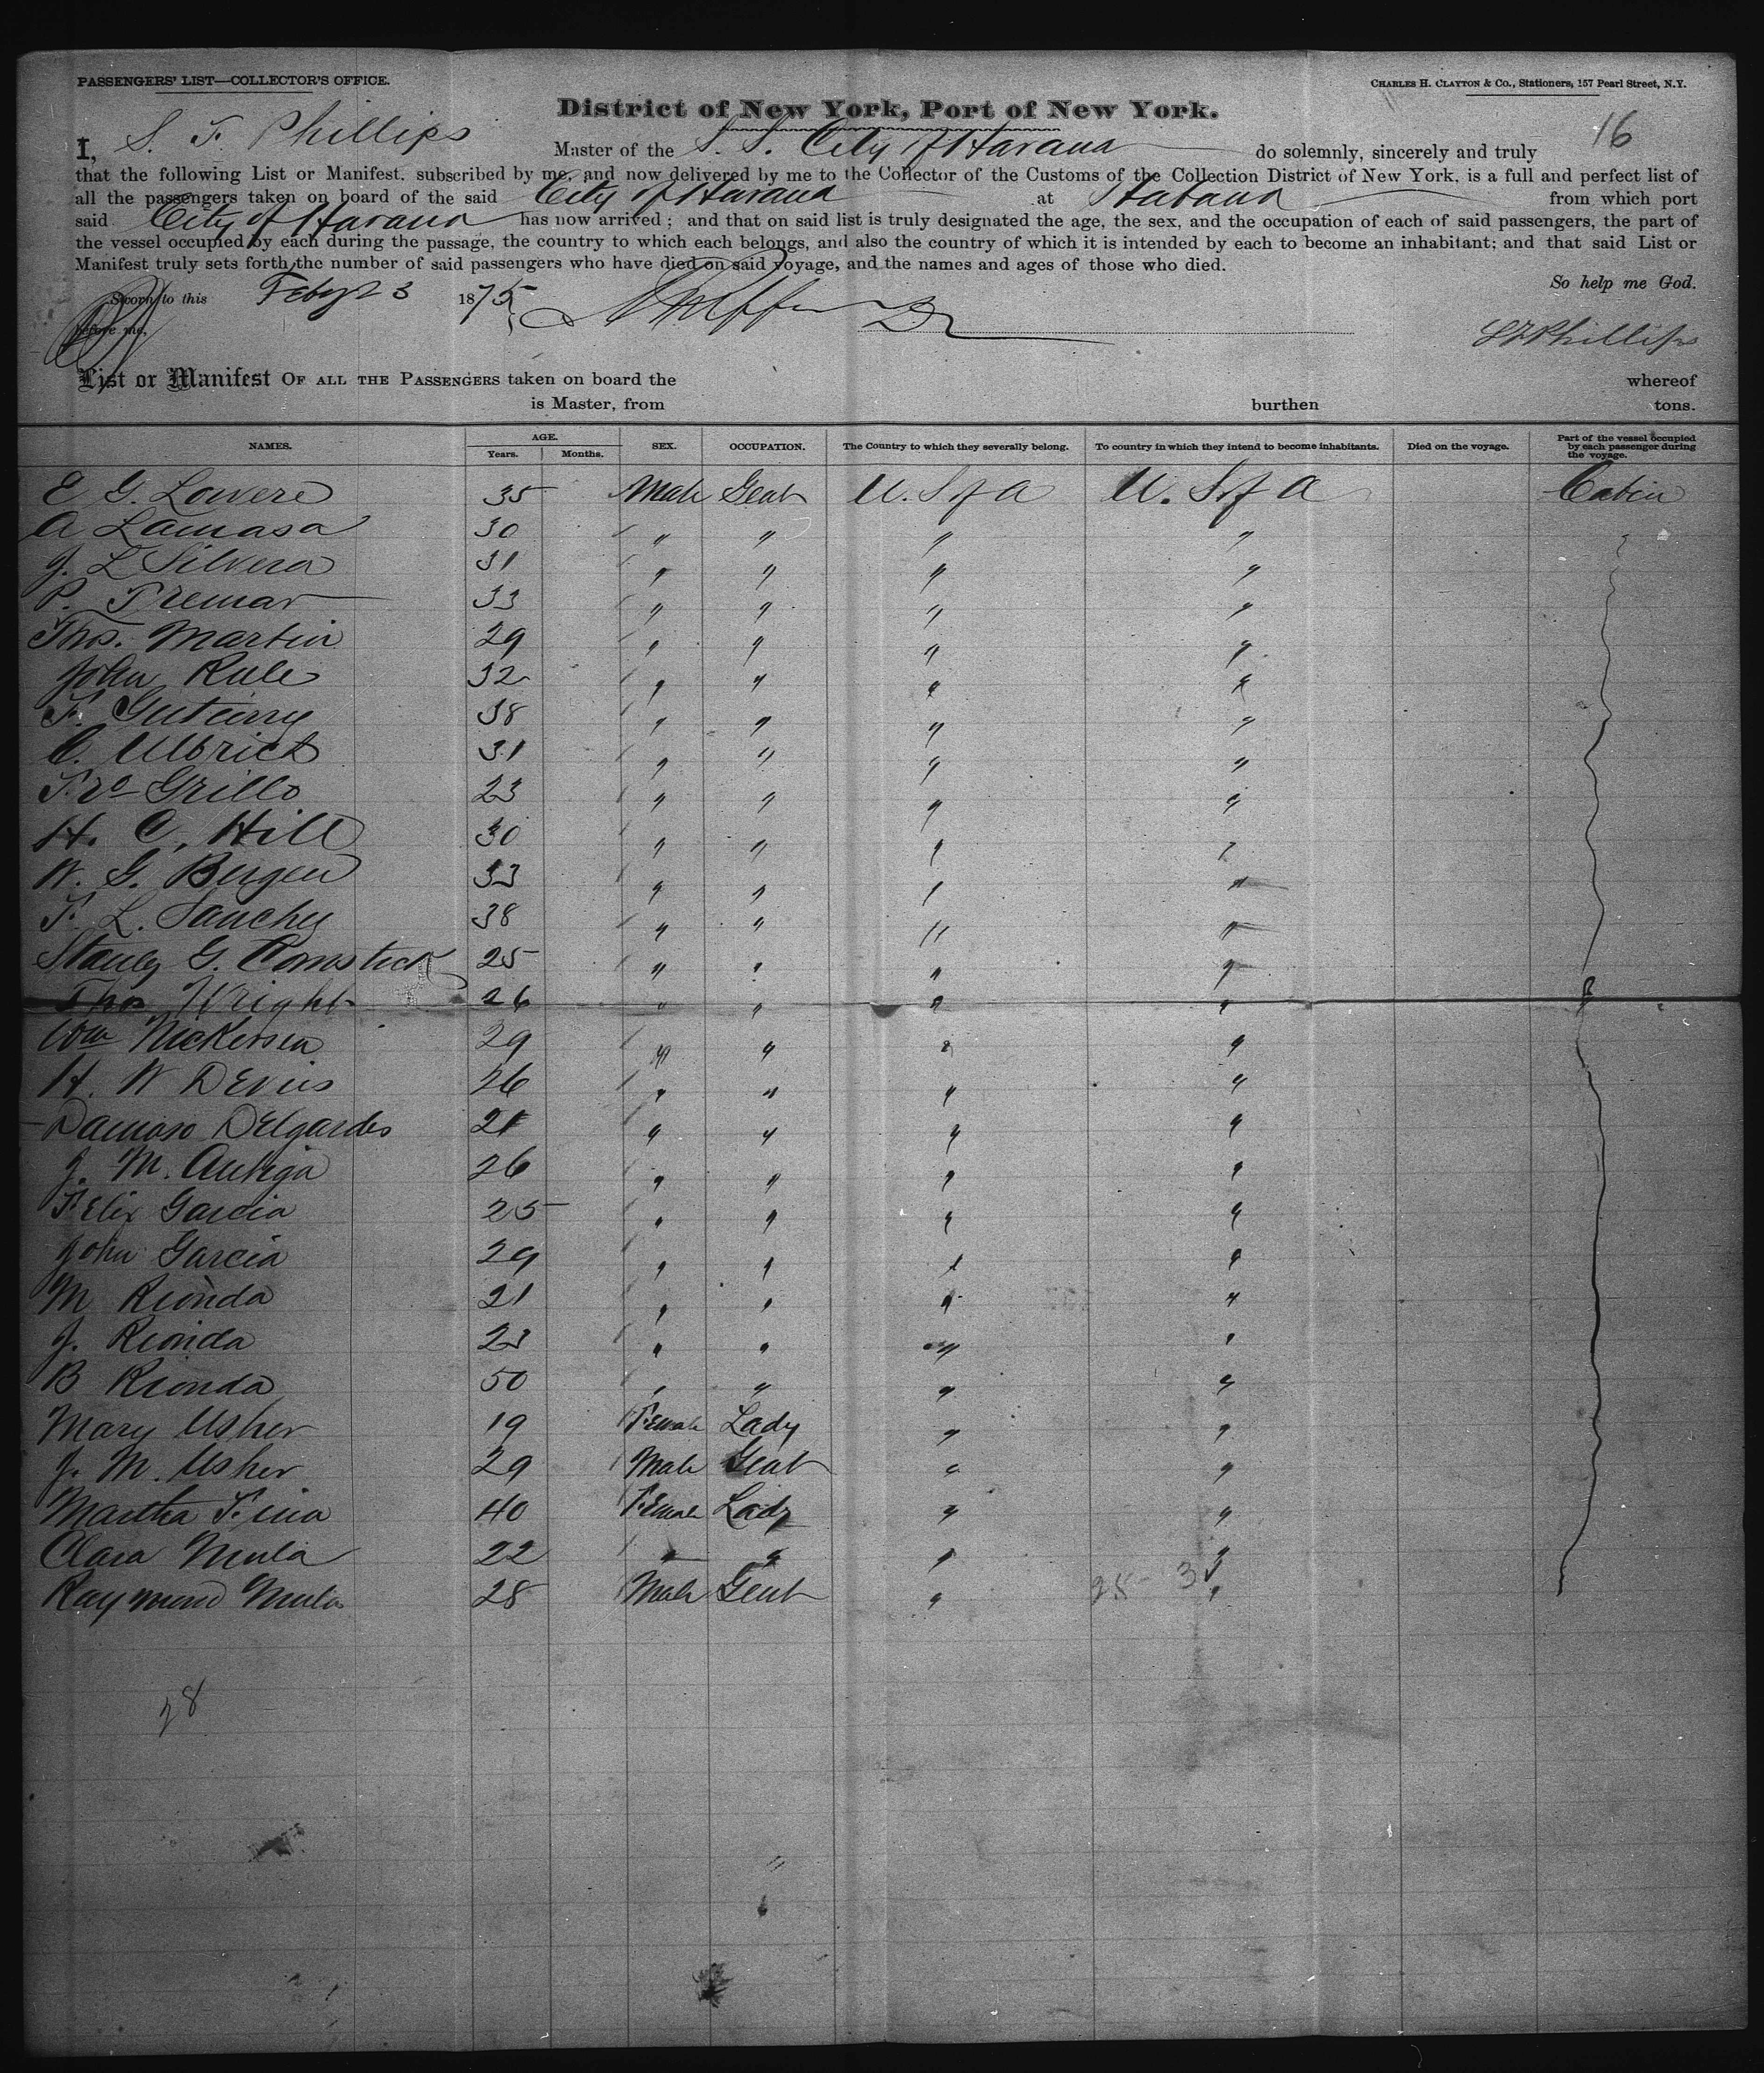 PASSENGERS' LIST—COLLECTOR'S OFFICE.
CHARLES H. CLAYTON & Co., Stationers, 157 Pearl Street, N.Y.
District of New York, Port of New York.
16
I, S. F. Phillips Master of the S. S. City of Havana do solemnly, sincerely and truly
that the following List or Manifest, subscribed by me, and now delivered by me to the Collector of the Customs of the Collection District of New York, is a full and perfect list of
all the passengers taken on board of the said City of Havana at Habana from which port
said City of Havana has now arrived; and that on said list is truly designated the age, the sex, and the occupation of each of said passengers, the part of
the vessel occupied by each during the passage, the country to which each belongs, and also the country of which it is intended by each to become an inhabitant; and that said List or
Manifest truly sets forth the number of said passengers who have died on said voyage, and the names and ages of those who died.
So help me God.
Sworn to this Feby 23 1875
before me,
S F Phillips
List or Manifest OF ALL THE PASSENGERS taken on board the whereof
is Master, from burthen tons.
NAMES. AGE. Years. Months. SEX. OCCUPATION. The Country to which they severally belong. To country in which they intend to become inhabitants. Died on the voyage. Part of the vessel occupied by each passenger during the voyage.
E G. Lowere 35 Male Gent U. S of A U. S of A Cabin
A Lamasa 30 " " " "
J. L Silvera 31 " " " "
P. Tremar 33 " " " "
Thos. Martin 29 " " " "
John Rule 32 " " " "
F. Gutierry 38 " " " "
C. Ulbrick 31 " " " "
Fco Grillo 23 " " " "
H. C. Hill 30 " " " "
W. G. Bergen 33 " " " "
F. L. Sanchy 38 " " " "
Stanly G. Comstock 25 " " " "
Thos Wright 26 " " " "
Wm Nickersen 29 " " " "
H. W Devis 26 " " " "
Damaso Delgardes 21 " " " "
J. M. Autiga 26 " " " "
Felix Garcia 25 " " " "
John Garcia 29 " " " "
M Rionda 21 " " " "
J. Rionda 23 " " " "
B Rionda 50 " " " "
Mary Usher 19 Female Lady " "
J. M. Usher 29 Male Gent " "
Martha Fina 40 Female Lady " "
Clara Mula 22 " " " "
Raymond Mula 28 Male Gent " "
28